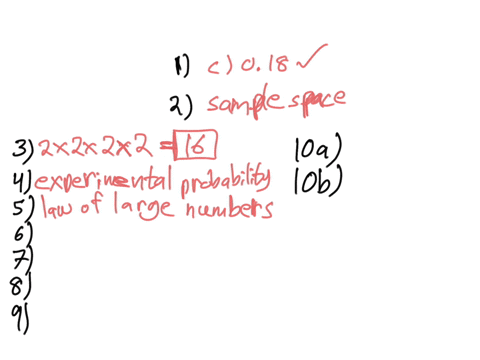 1) c) 0.18 ✓
2) sample space
3) 2x2x2x2 = 16
4) experimental probability
5) law of large numbers
6)
7)
8)
9)
10a)
10b)